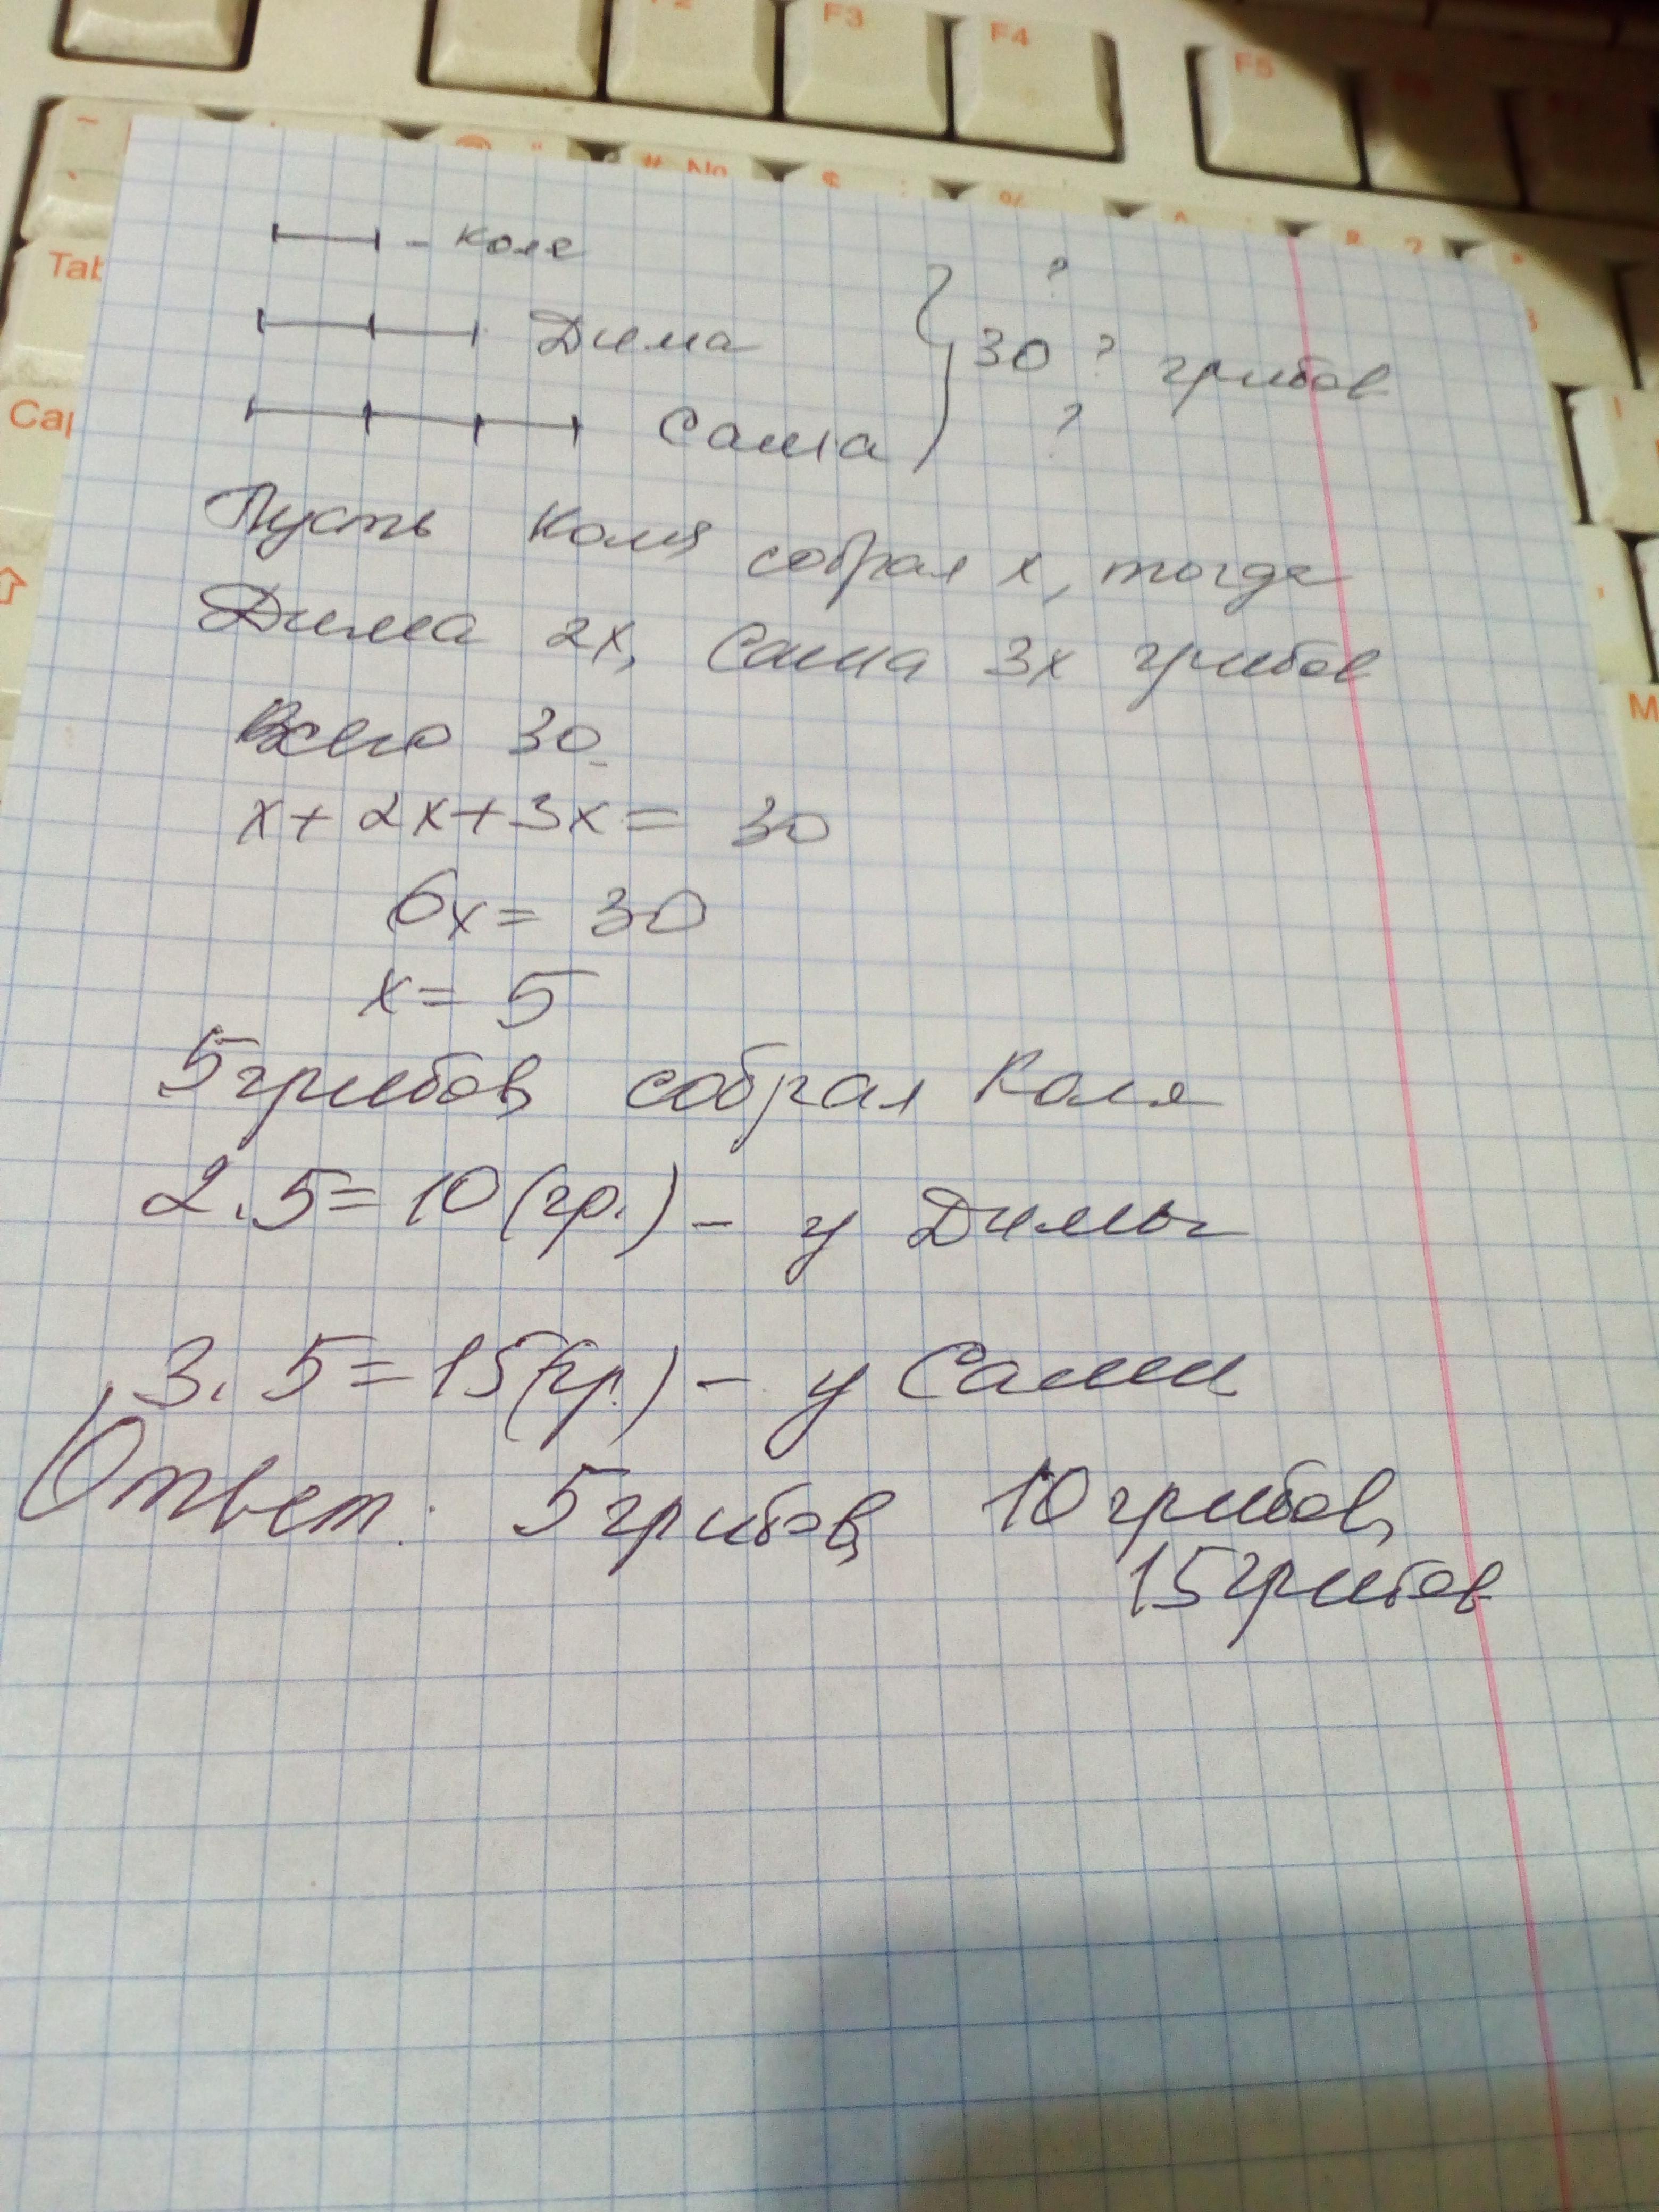 F2 F3 F4 F5
# No $ %
& ?
Tab
Cap
M
- Коля
Дима
Саша
?
30 ? грибов
?
Пусть Коля собрал x, тогда
Дима 2x, Саша 3x грибов
Всего 30
x+2x+3x= 30
6x= 30
x= 5
5грибов собрал Коля
2.5=10(гр.) - у Димы
3. 5=15(гр.) - у Саши
Ответ: 5грибов, 10грибов,
15грибов